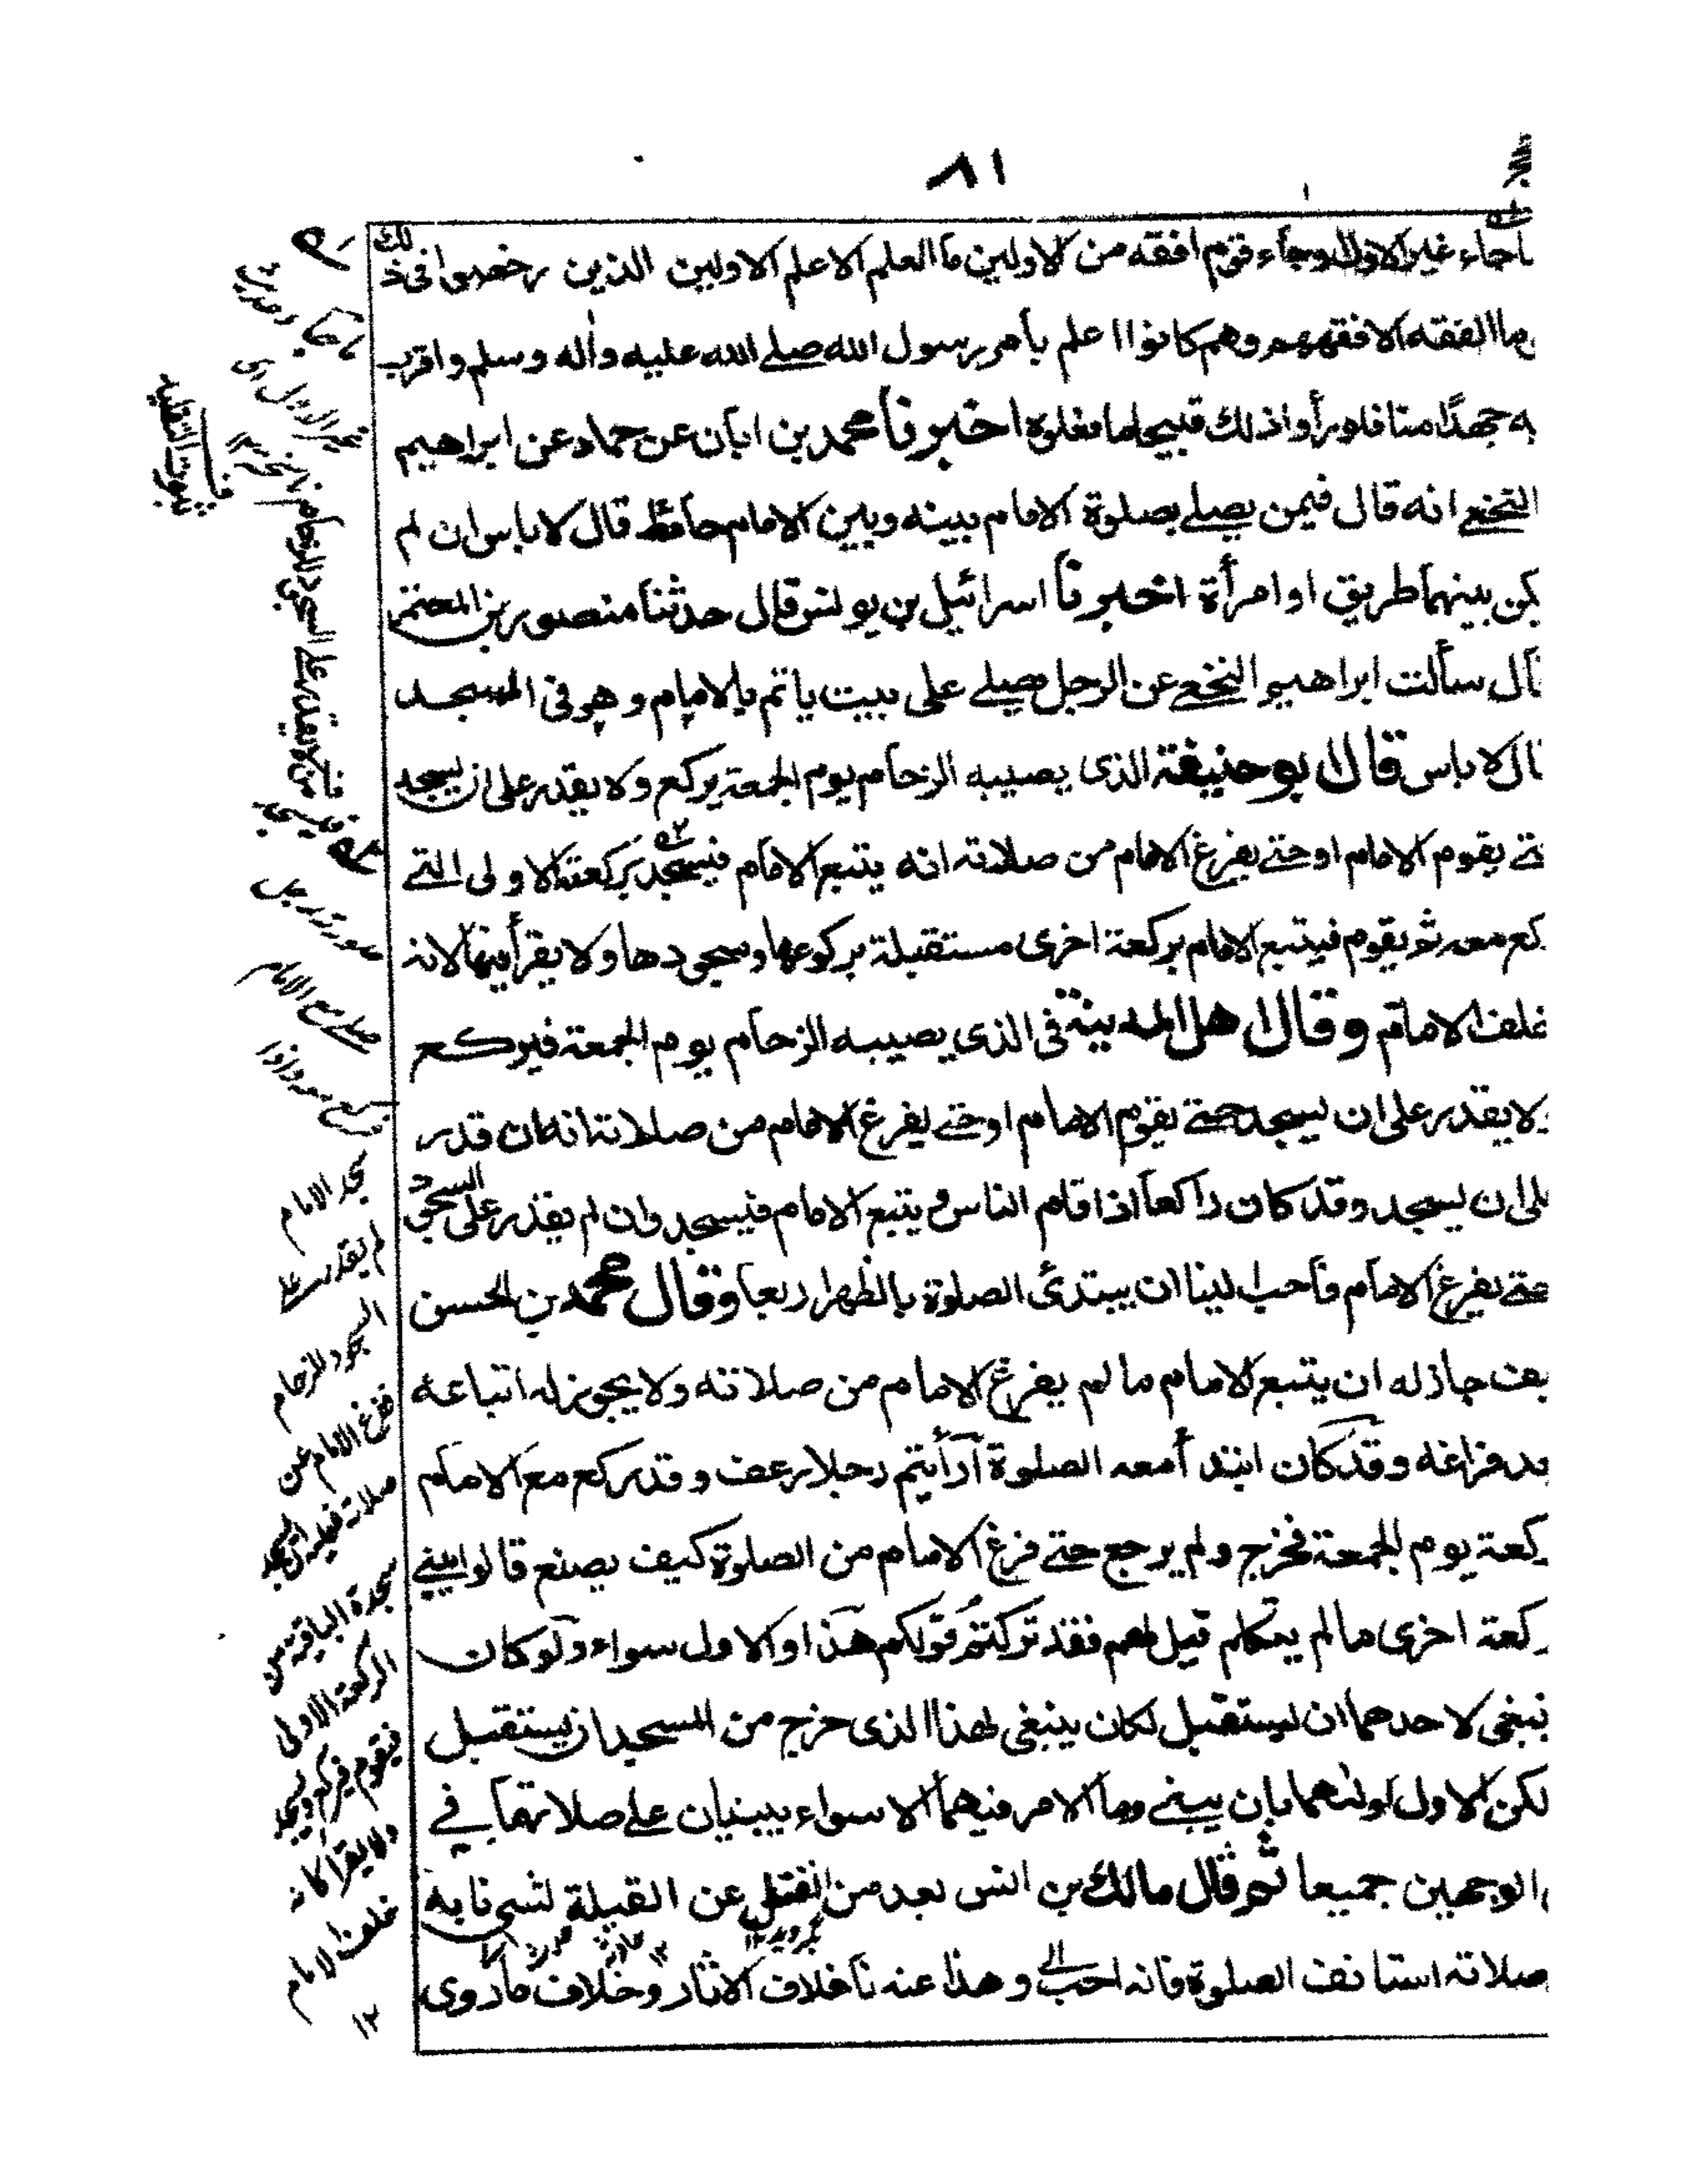 ٨١
جاء غير الاول اوجاء قوم افقه من الاولين ما العلم الا علم الاولين الذين رخصوا فى ذلك
ما الفقه الا فقههم وهم كانوا اعلم بأمر رسول الله صلے الله عليه واٰله وسلم واقرب
به جهدًا منا فلو رأوا ذلك قبيحا ما فعلوه اخبرنا محمد بن ابان عن حماد عن ابراهيم
النخعے انه قال فيمن يصلے بصلوة الامام بينه وبين الامام حائط قال لا باس ان لم
يكن بينهما طريق او امرأة اخبرنا اسرائيل بن يونس قال حدثنا منصور بن المعتمر
قال سألت ابراهيم النخعے عن الرجل يصلے على بيت ياتم بالامام وهو فى المسجد
قال لا باس قال ابو حنيفة الذى يصيبه الزحام يوم الجمعة يركع ولا يقدر على ان يسجد
حتے يقوم الامام او حتے يفرغ الامام من صلاته انه يتبع الامام فيسجد بركعته الاولى التے
ركع معه ثم يقوم فيتبع الامام بركعة اخرى مستقبلة بركوعها وسجودها ولا يقرأ فيهما لانه
خلف الامام وقال اهل المدينة فى الذى يصيبه الزحام يوم الجمعة فيركع
ولا يقدر على ان يسجد حتے يقوم الامام او حتے يفرغ الامام من صلاته انه ان قدر
على ان يسجد وقد كان راكعا اذا قام الناس يتبع الامام فيسجد وان لم يقدر على السجود
حتے يفرغ الامام فأحب الينا ان يبتدئ الصلوة بالظهر اربعا وقال محمد بن الحسن
كيف جاز له ان يتبع الامام ما لم يفرغ الامام من صلاته ولا يجوز له اتباعه
بعد فراغه وقد كان ابتدأ معه الصلوة أرأيتم رجلا رعف وقد ركع مع الامام
ركعة يوم الجمعة فخرج ولم يرجع حتے فرغ الامام من الصلوة كيف يصنع قالوا يبنے
ركعة اخرى ما لم يتكلم قيل لهم فقد تركتم قولكم هذا والاول سواء ولو كان
ينبغى لاحدهما ان يستقبل لكان ينبغى لهذا الذى خرج من المسجد ان يستقبل
لكن الاول اولٰهما بان يبنے وما الامر فيهما الا سواء يبنيان علے صلاتهما فے
الوجهين جميعا ثم قال مالك بن انس بعد من انفتل عن القبلة لشئ نابه
صلاته استانف الصلوة فانه احب الى وهذا عنه نا خلاف الاثار وخلاف ما روى
سجد الامام
لم يقدر علے
السجود للزحام
فرغ الامام عن
سجدة الباقية من
الركعة الاولى
خلف الامام
١٢